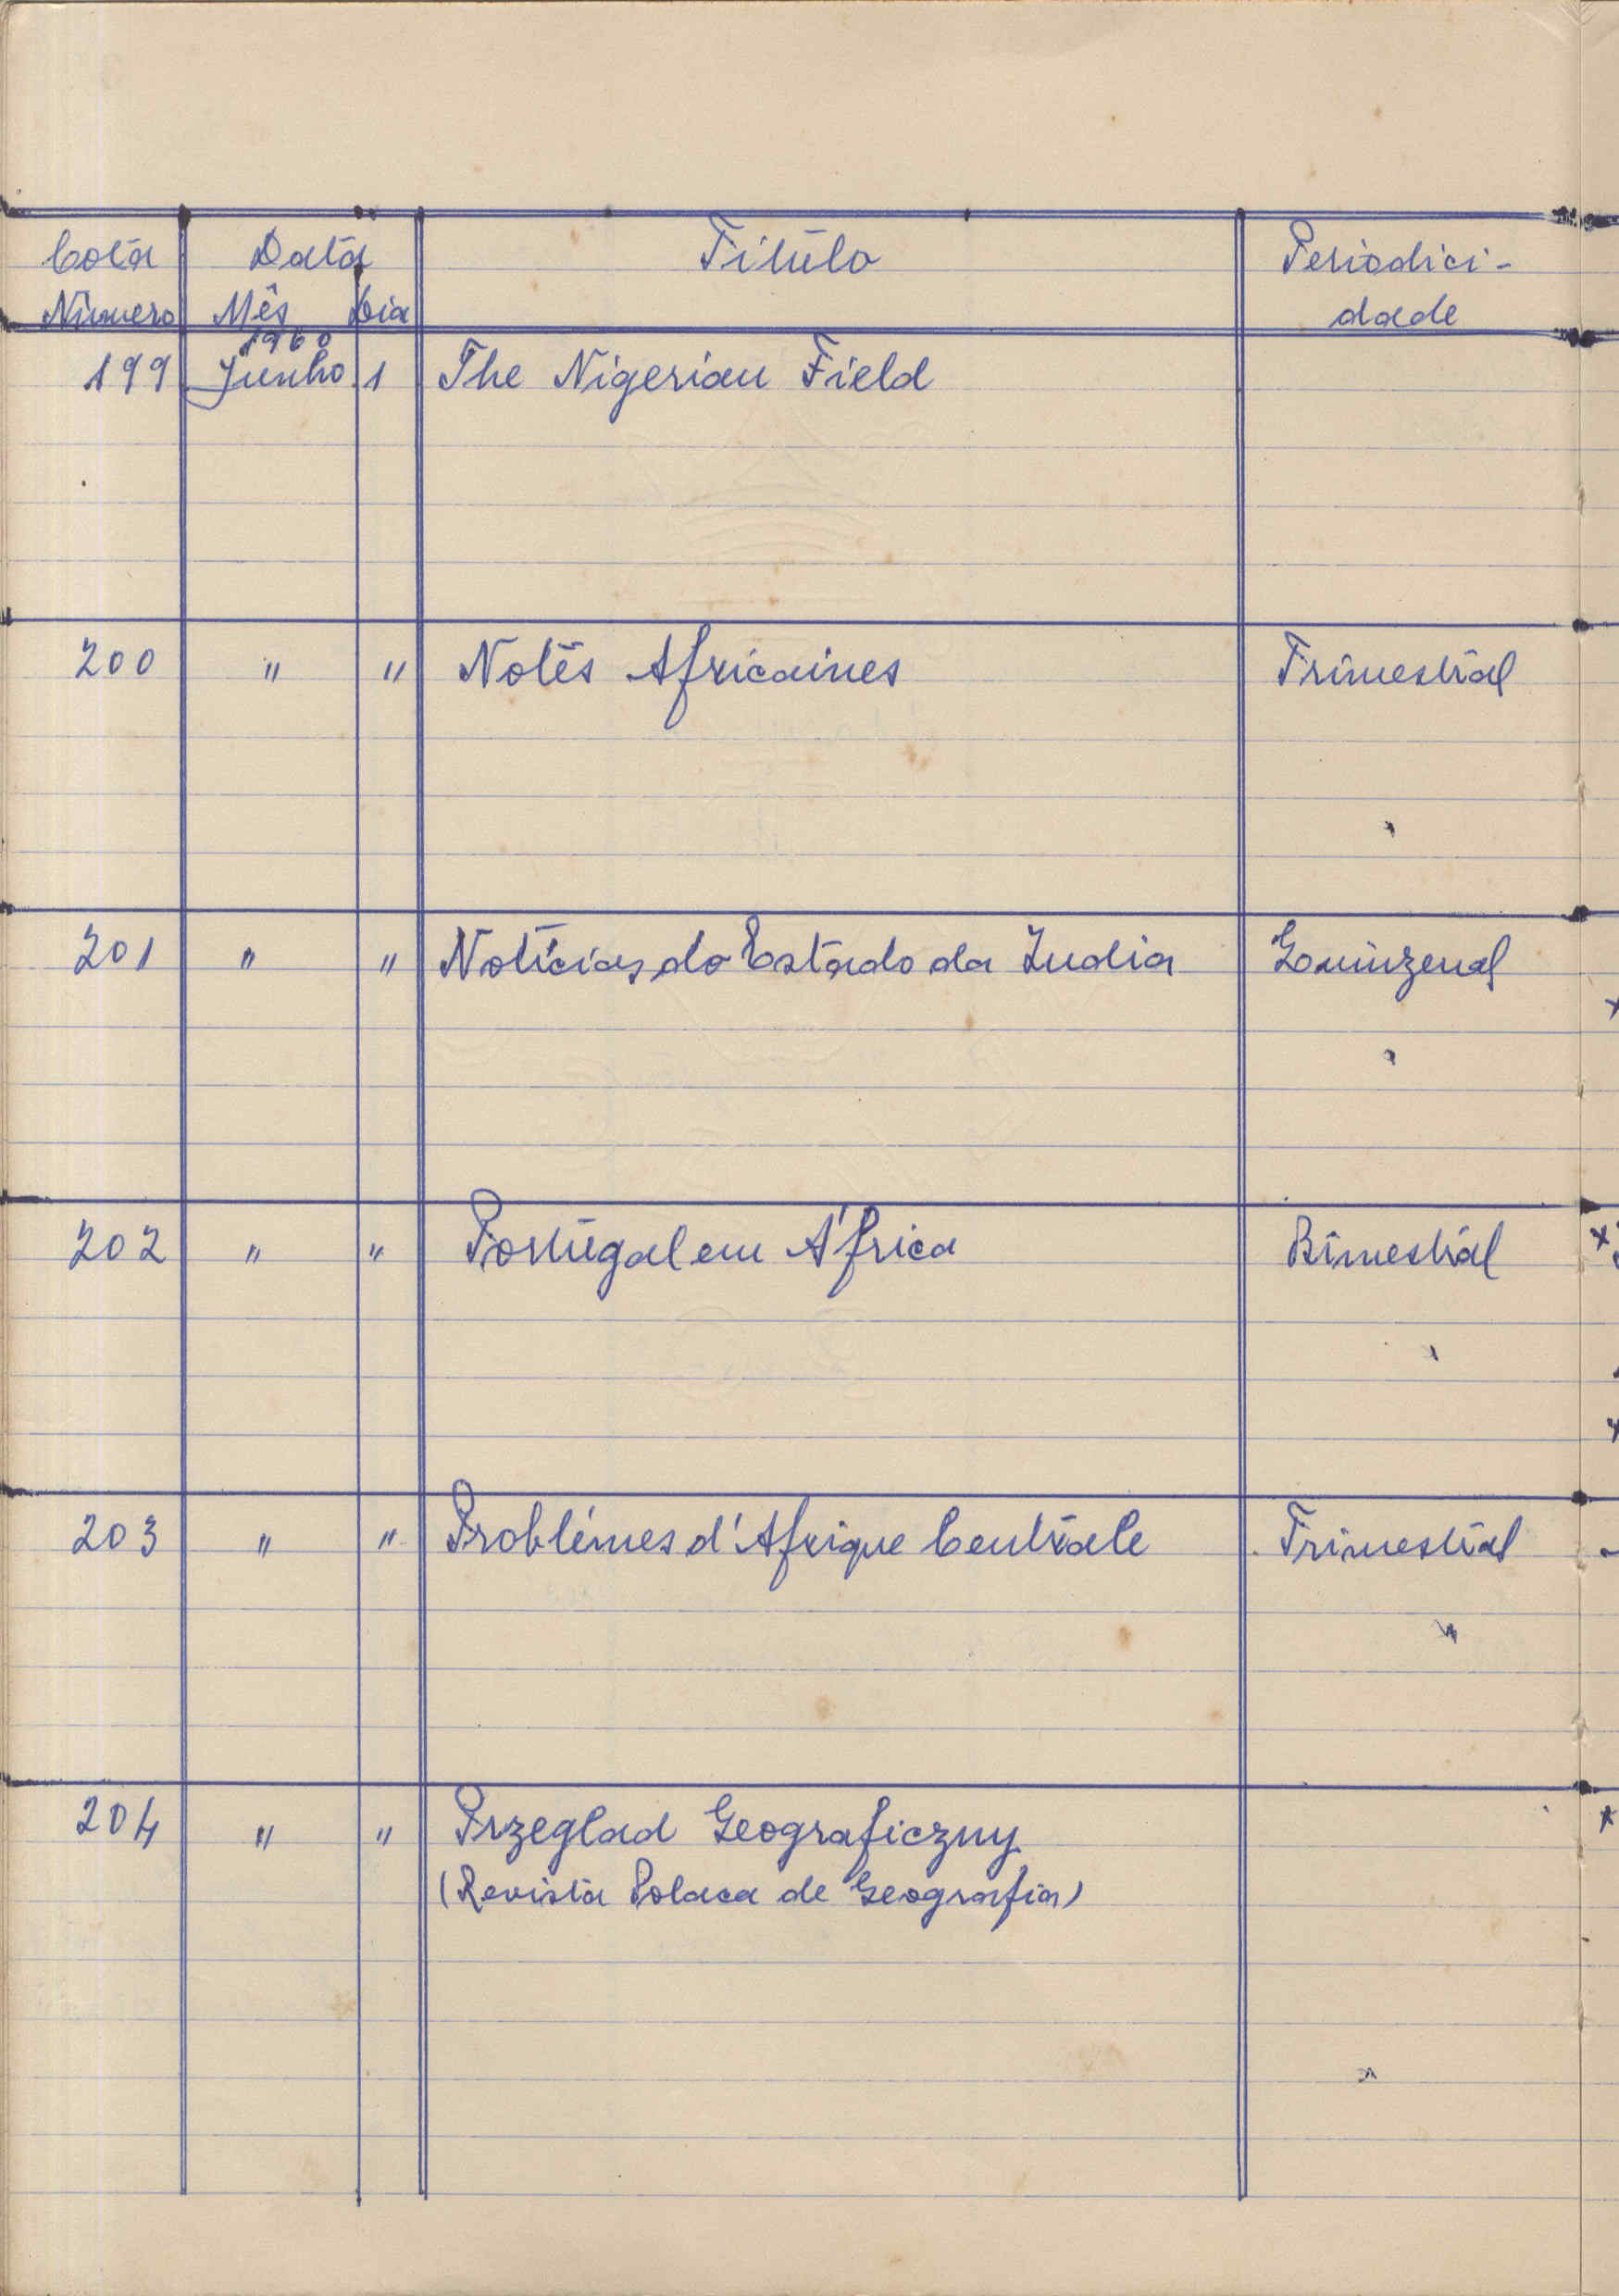 Cota Data Titulo Periodici-
Número Mês Dia dade
1960
199 Junho 1 The Nigerian Field
200 " " Notes Africaines Trimestral
201 " " Notícias do Estado da India Quinzenal
202 " " Portugal em África Bimestral
203 " " Problémes d'Afrique Centrale Trimestral
204 " " Przeglad Geograficzny
(Revista Polaca de Geografia)